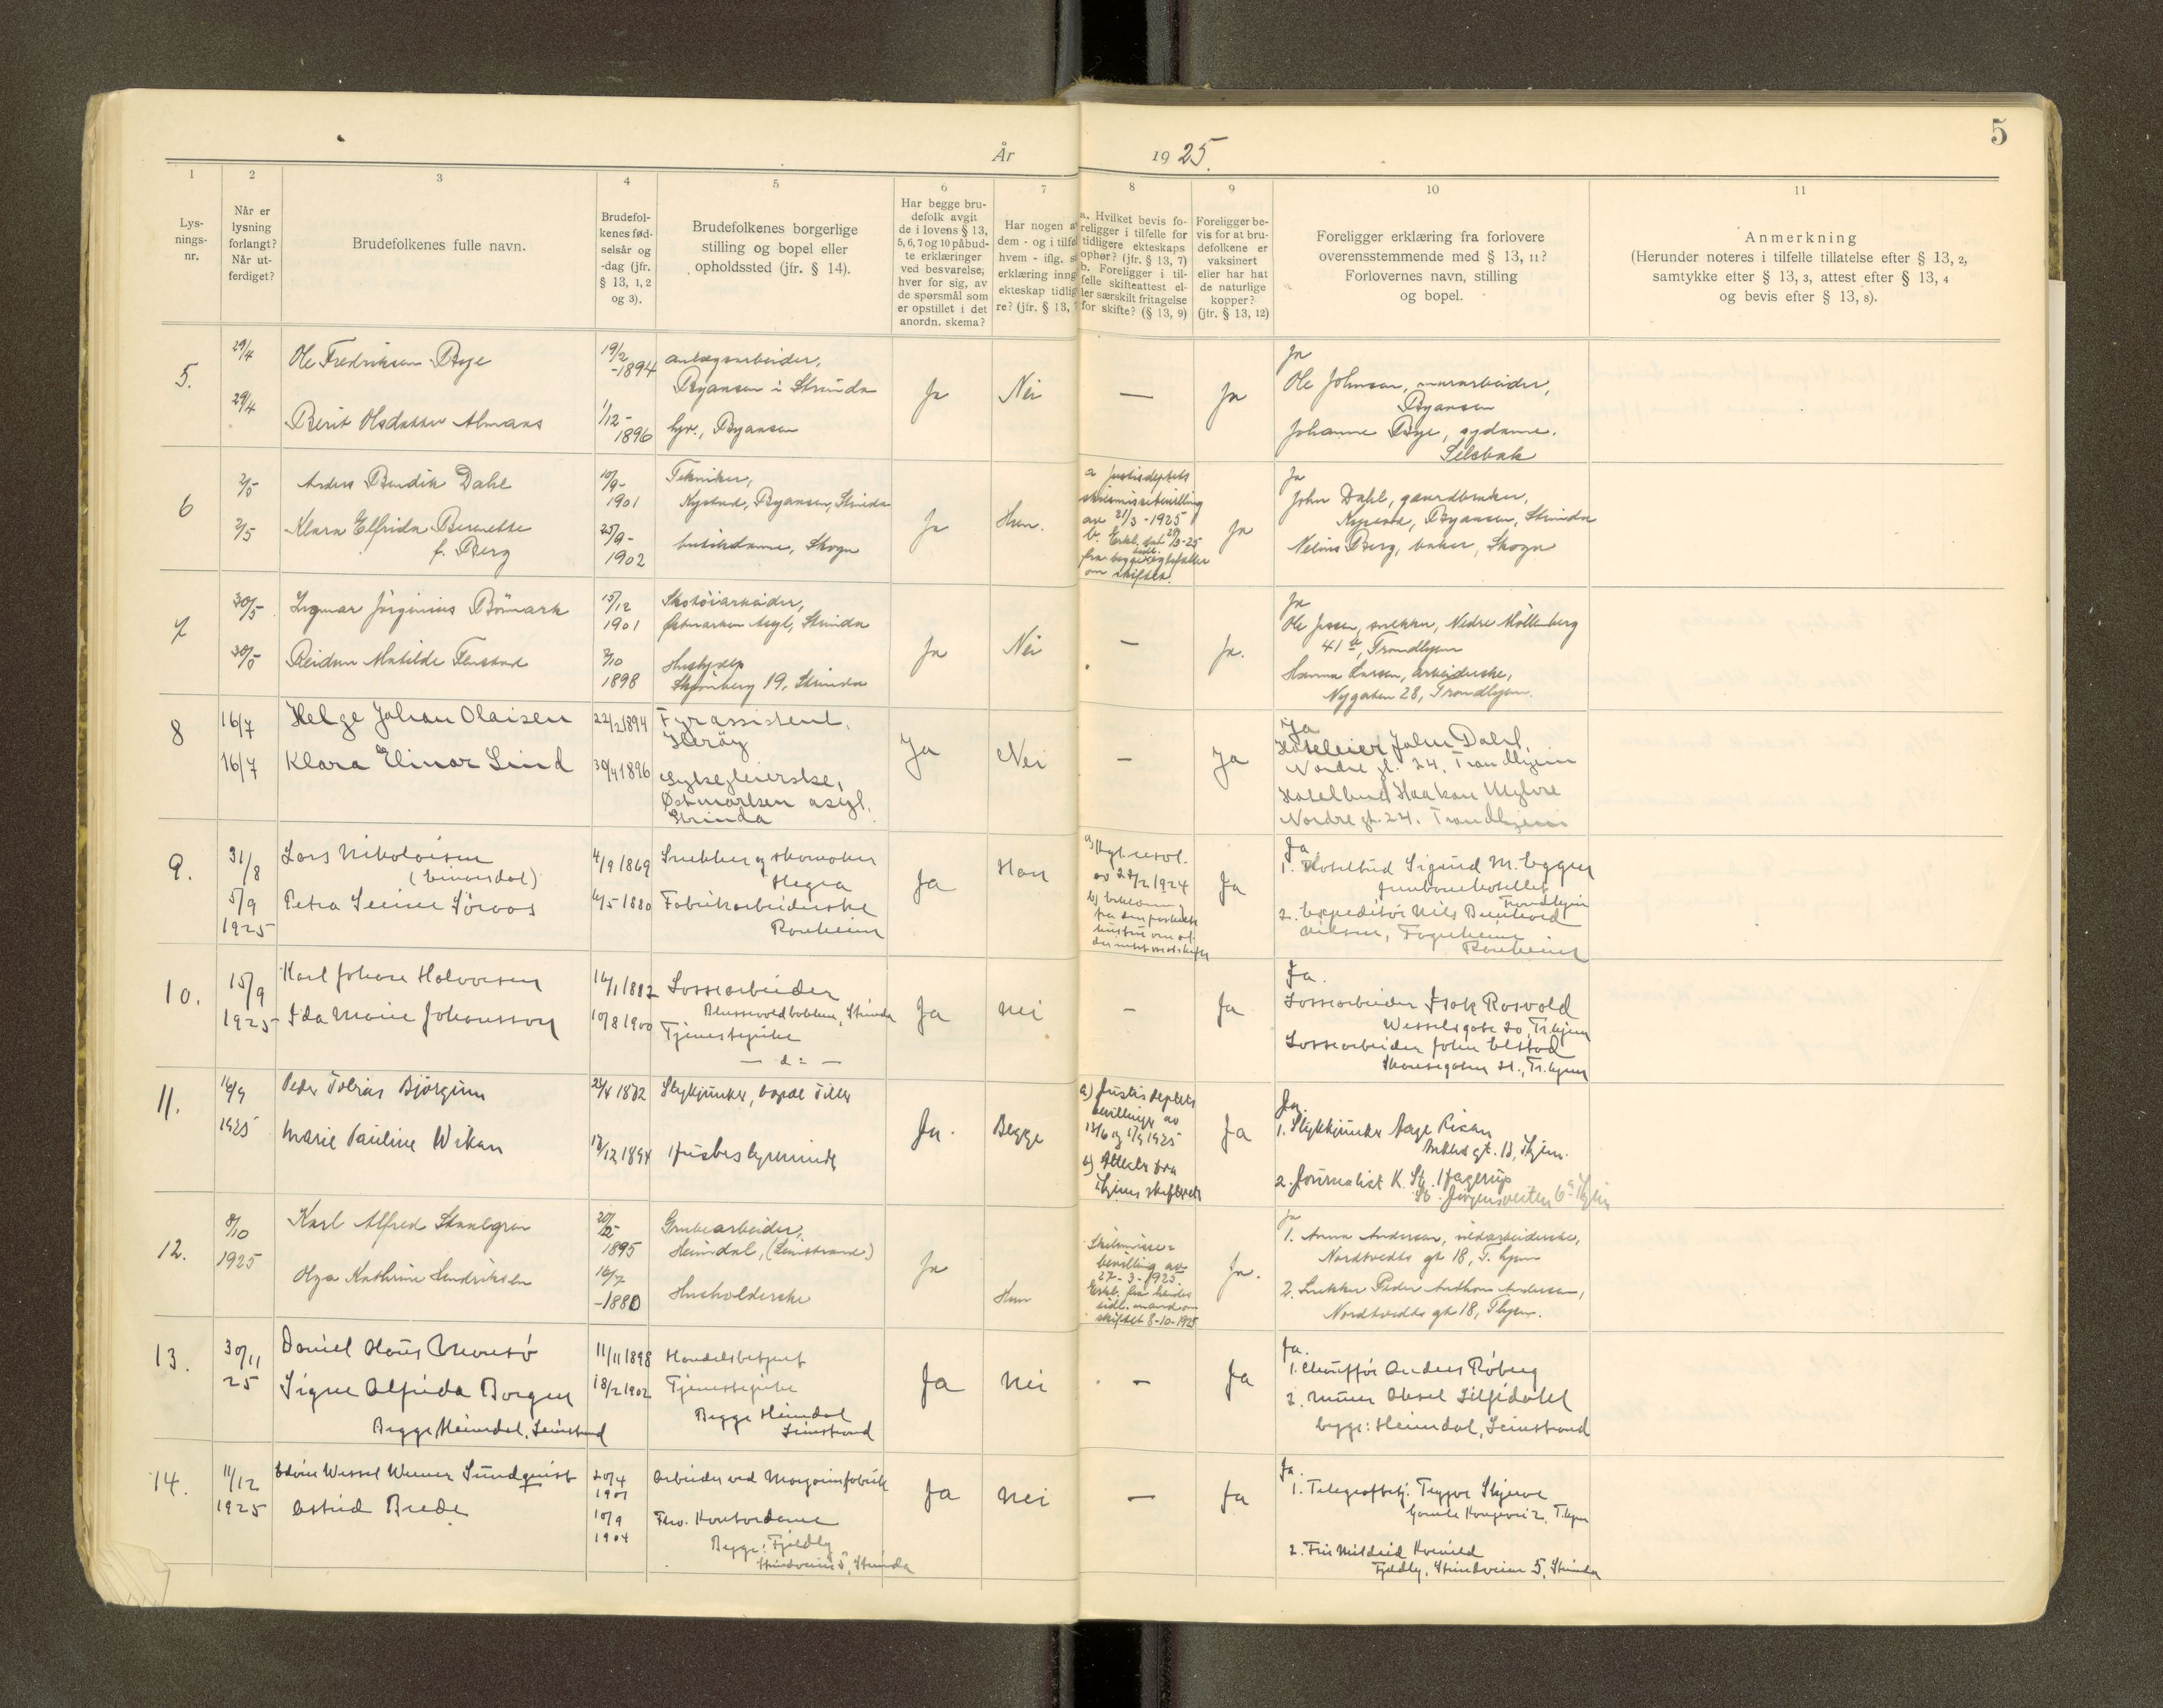 5
År 1925.
1
2
3
4
5
6
7
8
9
10
11
Lys-
nings-
nr.
Når er
lysning
forlangt?
Når ut-
ferdiget?
Brudefolkenes fulle navn.
Brudefol-
kenes fød-
selsår og
-dag (jfr.
§ 13, 1, 2
og 3).
Brudefolkenes borgerlige
stilling og bopel eller
opholdssted (jfr. § 14).
Har begge bru-
defolk avgit
de i lovens § 13,
5, 6, 7 og 10 påbud-
te erklæringer
ved besvarelse,
hver for sig, av
de spørsmål som
er opstillet i det
anordn. skema?
Har nogen a
dem - og i tilfe
hvem - iflg. s
erklæring inng
ekteskap tidlig
re? (jfr. § 13,
a. Hvilket bevis fo-
religger i tilfelle for
tidligere ekteskaps
ophør? (jfr. § 13, 7)
b. Foreligger i til-
felle skifteattest el-
ler særskilt fritagelse
for skifte? (§ 13, 9)
Foreligger be-
vis for at bru-
defolkene er
vaksinert
eller har hat
de naturlige
kopper?
(jfr. § 13, 12)
Foreligger erklæring fra forlovere
overensstemmende med § 13, 11?
Forlovernes navn, stilling
og bopel.
Anmerkning
(Herunder noteres i tilfelle tillatelse efter § 13, 2,
samtykke efter § 13, 3, attest efter § 13, 4
og bevis efter § 13, 8).
5.
29/4
29/4
Ole Fredriksen Bye
Berit Olsdatter Almaas
19/2
-1894
1/12-
1896
anlægsarbeider,
Byaasen i Strinda
hjv., Byaasen
Ja
Nei
—
Ja
Ja
Ole Johnsen, murarbeider,
Byaasen
Johanne Bye, sydame.
Selsbak
6
2/5
2/5
Anders Bendik Dahl
Klara Elfrida Berentte
f. Berg
10/9-
1901
25/9-
1902
Tekniker,
Nystad, Byaasen, Strinda
butikdame, Skogn
Ja
Hun.
a Justisdeptets
skilsmissebevilling
av 21/3-1925
b. Erkl. dat
fra begge
om skiftet.
Ja
Ja
John Dahl, gaardbruker,
Nystad, Byaasen, Strinda
Nelius Berg, baker, Skogn
7
30/5
30/5
Ingmar Jørginius Bømark
Reidun Matilde Fenstad
15/12
1901
2/10
1898
Skotøiarbeider,
Østmarken Asyl, Strinda
Hushjelp
Skyåsberg 19, Strinda
Ja
Nei
—
Ja.
Ja
Ole Jessen, snekker, Nedre Møllenberg
41 b, Trondhjem
Hanna Larsen, arbeiderske,
Nygaten 28, Trondhjem.
8
16/7
16/7
Helge Johan Olaisen
Klara Elinor Lind
22/2 1894
30/4 1896
Fyrassistent.
Herøy
Sykepleierske,
Østmarken asyl.
Strinda
Ja
Nei
—
Ja
Ja
Hoteleier John Dahl,
Nordre gt. 24, Trondhjem
Hotelbud Haakon Myhre
Nordre gt. 24. Trondhjem
9.
31/8
5/9
1925
Lars Nikolaisen
(Einarsdal)
Petra Senine Søraas
4/9 1869
16/5 1880
Snekker og skomaker
Hegra
Fabrikarbeiderske
Ranheim
Ja
Han
a) Kgl. resol.
av 28/2 1924
Ja
Ja
1. Hotelbud Sigurd M. Eggen
Jernbanehotellet
Trondhjem
2. Expeditør Nils Bernhard
Nilsen, Fagerheim
Ranheim
10.
15/9
1925
Karl Johan Halvorsen
Ida Marie Johansson
16/1 1882
10/8 1900
Lossearbeider
Blussevoldbakken, Strinda
Tjenestepike
— d: —
Ja
Nei
—
Ja
Ja.
Lossearbeider Isak Rosvold
Wesselsgate 20, Tr.hjem
Lossearbeider John Elstad
Tr.hjem
11.
16/9
1925
Peder Tobias Bjørgum
Marie Pauline Wikan
23/4 1872
12/12 1894
Stykjunker, bopæl Tiller
Husbestyrerinde
Ja.
Begge
a) Justisdeptets
bevillinger av
13/6 og 17/9 1925
b) Attester fra
Thjems skifterett
Ja
Ja.
1. Stykkjunker Aage Risan
gt. 13, Thjem.
2. Journalist K. St. Hagerup
St. Jørgensveiten 6a Thjem
12.
8/10
1925
Karl Alfred Staalgren
Olga Kathrine Hendriksen
20/12-
1895
16/7
-1880
Grubearbeider,
Heimdal, (Leinstrand)
Husholderske
Ja
Hun
Skilsmisse-
bevilling av
27-3-1925.
Erkl. fra hendes
tidl. mand om
skiftet 8-10-1925
Ja.
Ja
1. Anna Andersen, arbeiderske,
Nordtvedts gt 18, T.hjem
2. Snekker Peder Anthon Andersen,
Nordtvedts gt 18, Thjem.
13.
30/11
25
Daniel Hans Monsø
Signe Alfrida Borgen
Begge Heimdal, Leinstrand
11/11 1898
18/2 1902
Handelsbetjent
Tjenestepike
Begge Heimdal
Leinstrand
Ja
Nei
—
Ja
Ja.
1. Chauffør Anders Røberg
2. Murer Aksel Liljedahl
begge: Heimdal, Leinstrand
14.
11/12
1925
Edvin Wessel Werner Sundquist
Astrid Brede
20/4
1901
10/9
1904
Arbeider ved Margarinfabrik
Frø. Kontordame
Begge: Fjeldly
Strindveien 5, Strinda
Ja
Nei
—
Ja
Ja.
1. Telegrafbetj. Trygve Skjerve
Gamle Kongevei 2, T.hjem
2. Frk Mildrid Kvenild
Fjeldly, Strindveien 5, Strinda